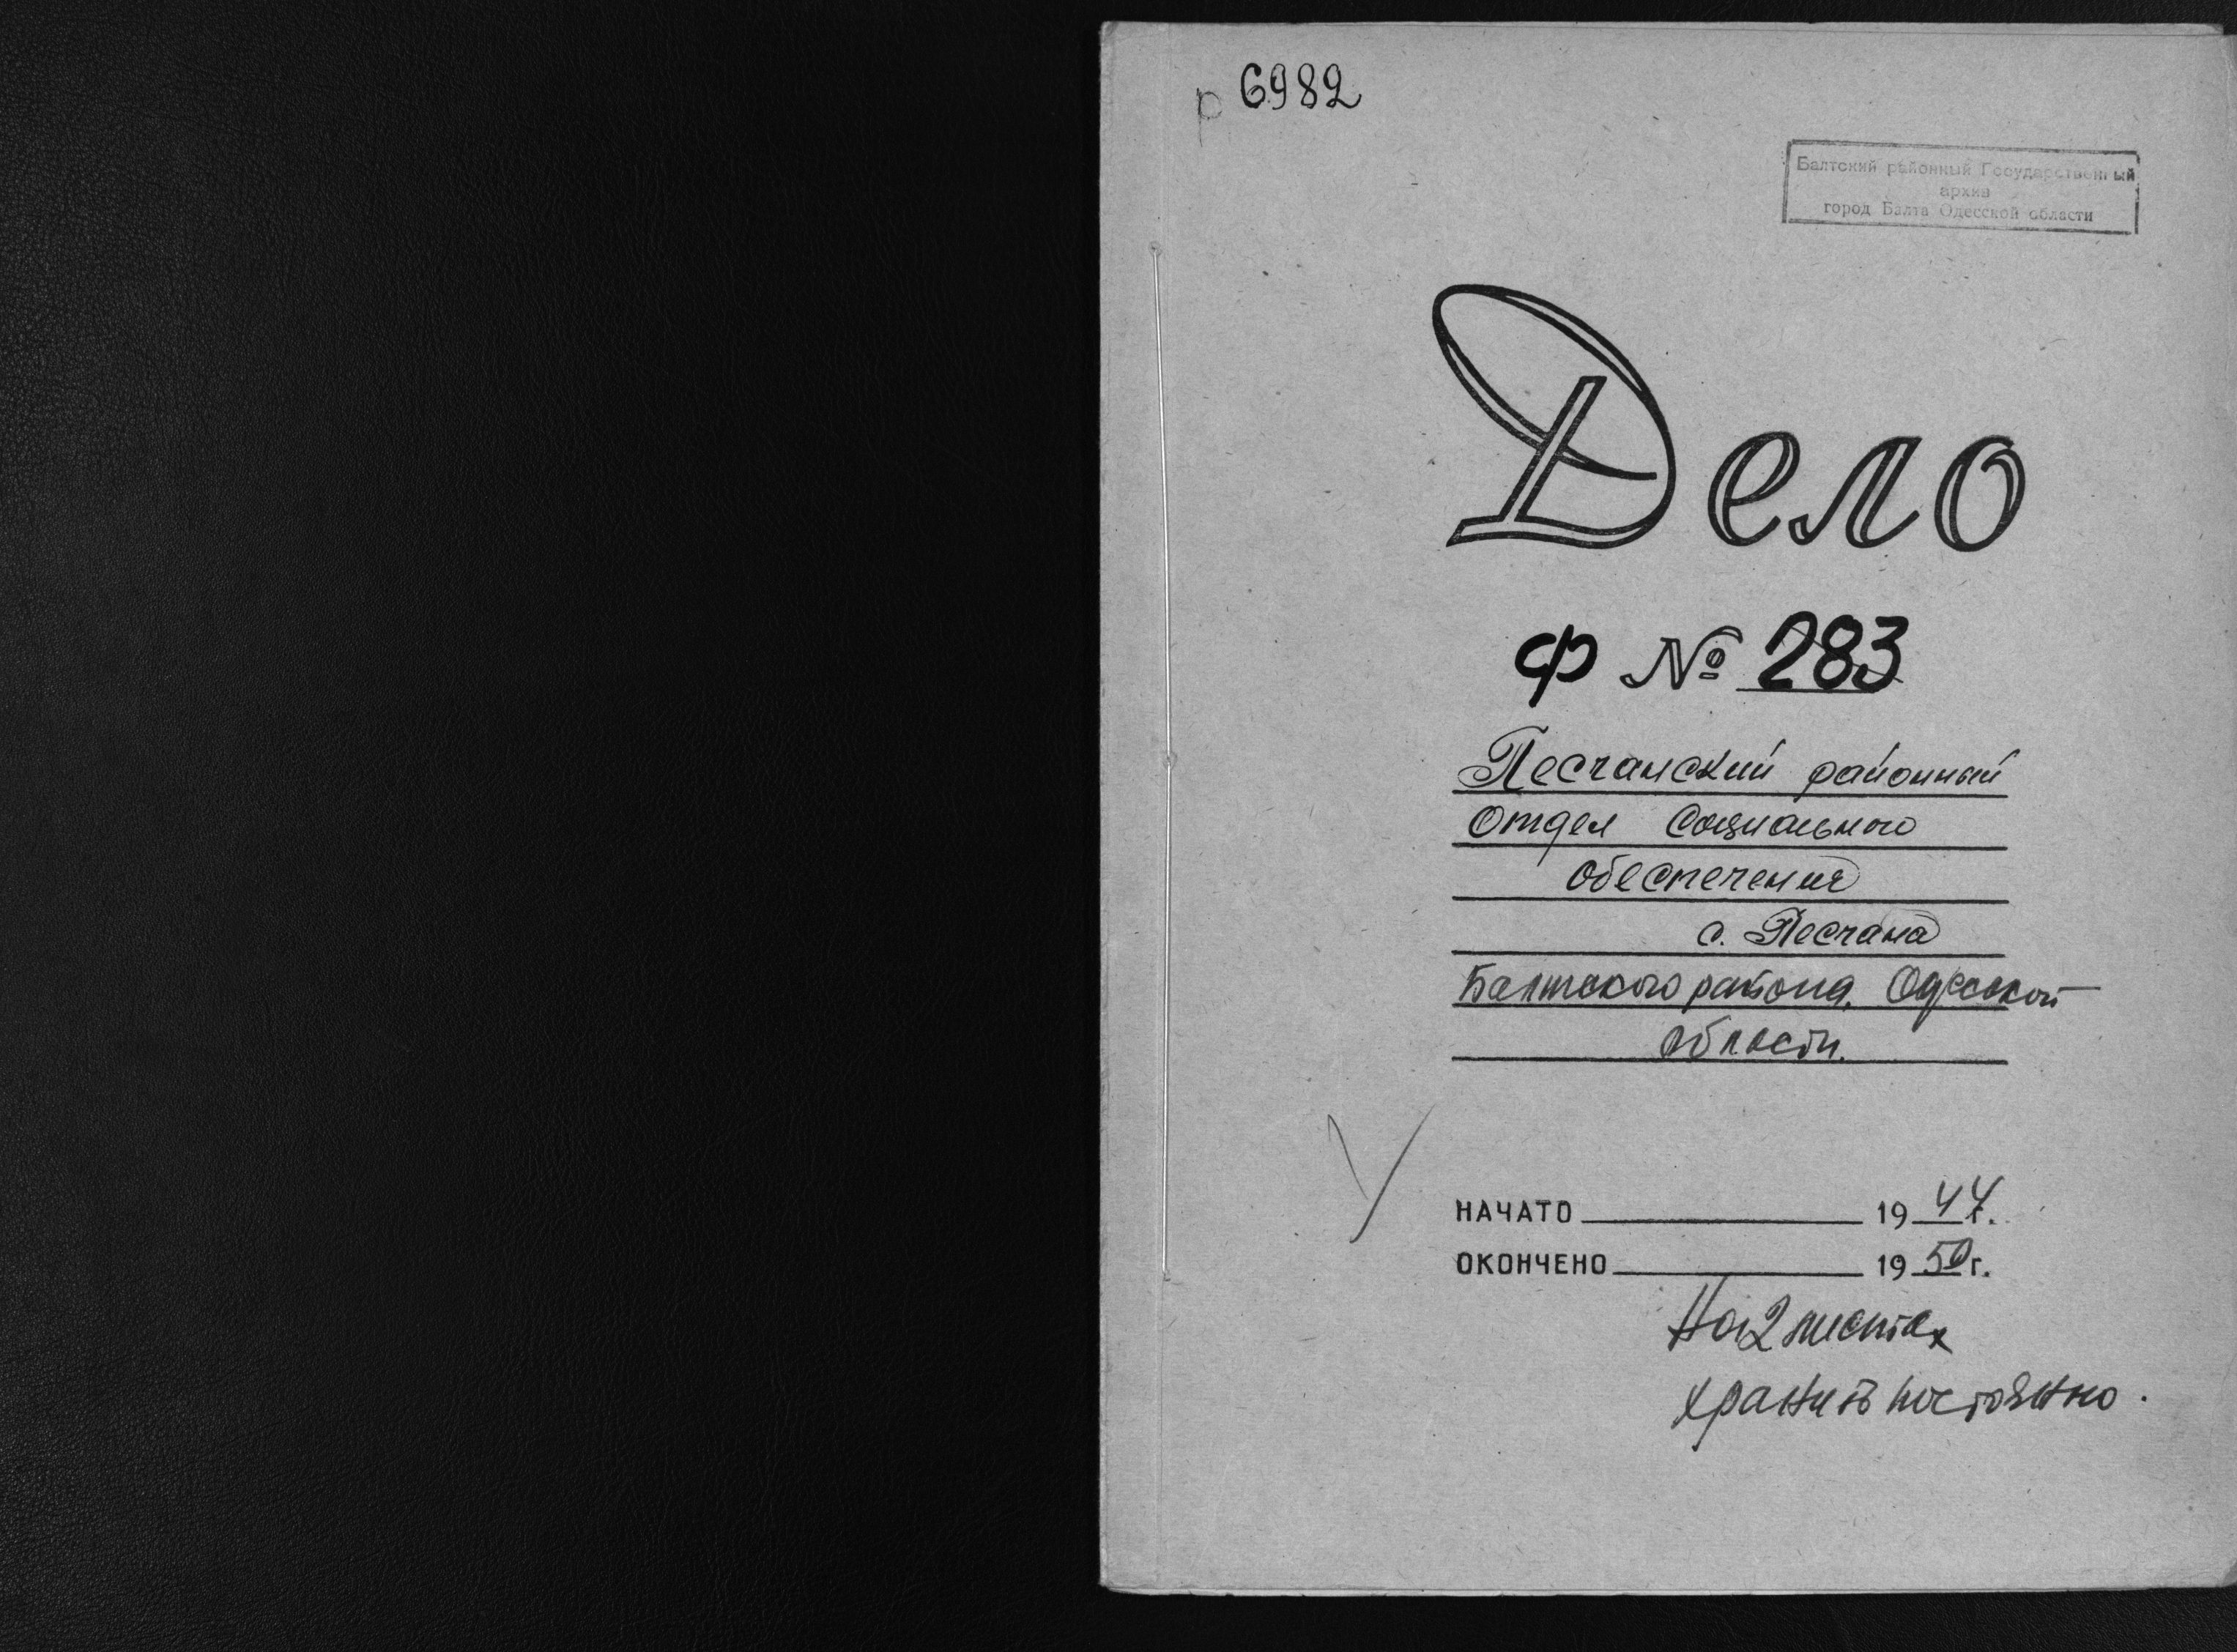 р 6982
Балтский районный Государственный
архив
город Балта Одесской области
Дело
Ф № 283
Песчанский районный
Отдел Социального
обеспечения
с. Песчана
Балтского района, Одесской
области.
НАЧАТО 1944 г.
ОКОНЧЕНО 1950 г.
На 2 листах
хранить постоянно.